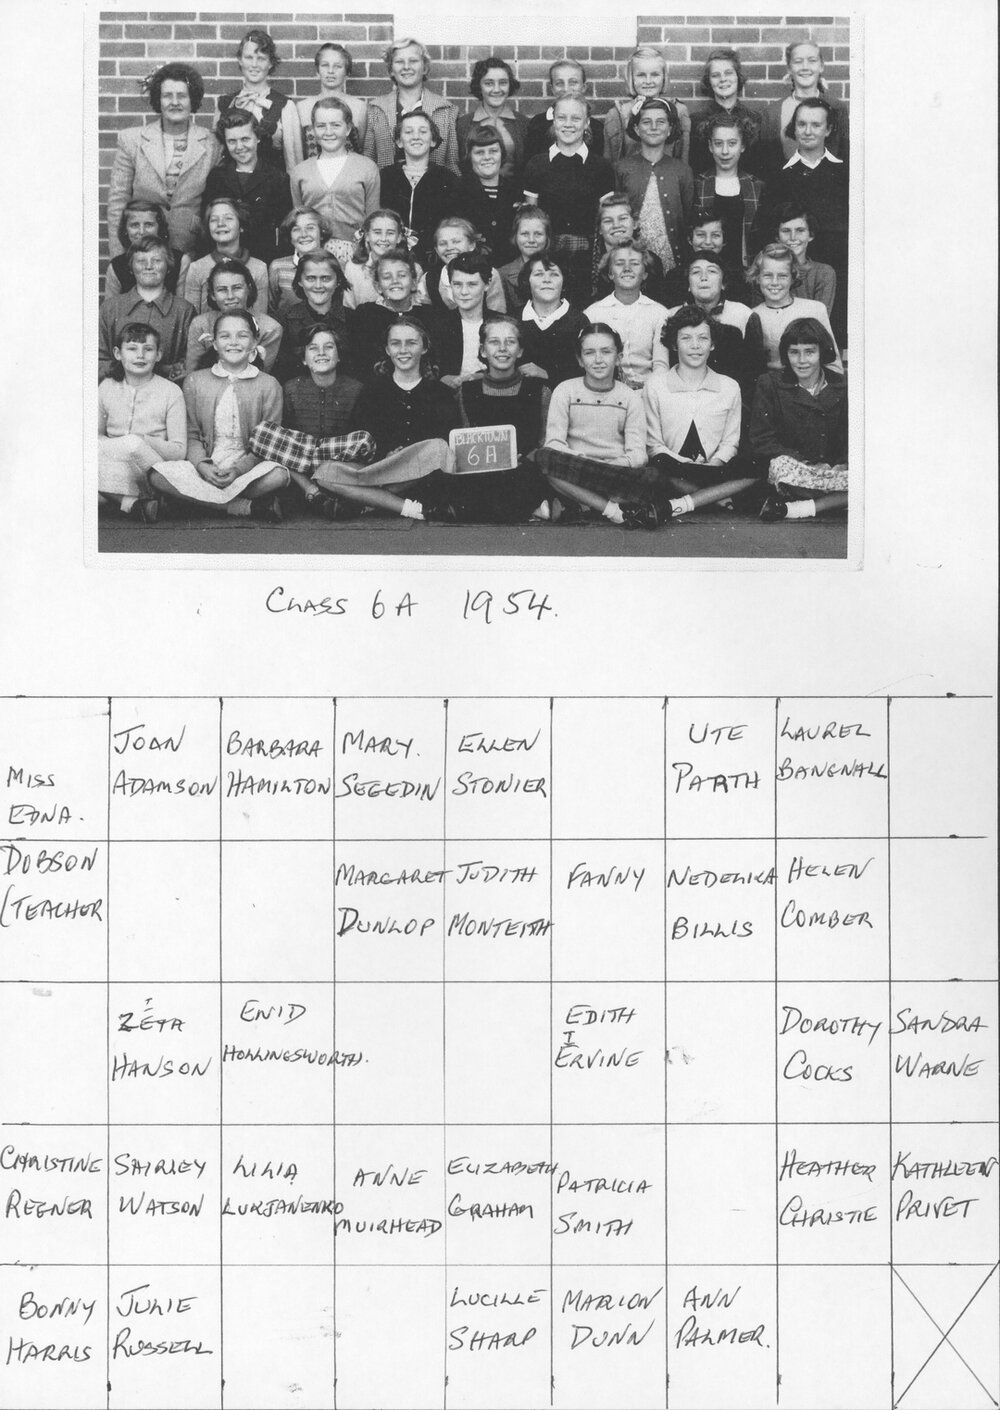 BLACKTOWN
6A
CLASS 6A 1954.
MISS
EDNA.
DOBSON
(TEACHER
JOAN
ADAMSON
BARBARA
HAMILTON
MARY.
SEGEDIN
ELLEN
STONIER
UTE
PARTH
LAUREL
BANGNALL
MARGARET
DUNLOP
JUDITH
MONTEITH
FANNY
NEDELIKA
BILLIS
HELEN
COMBER
I
ZETA
HANSON
ENID
HOLLINGSWORTH.
EDITH
I
ERVINE
DOROTHY
COCKS
SANDRA
WARNE
CHRISTINE
REGNER
SHIRLEY
WATSON
LILIA
LUKJANENKO
ANNE
MUIRHEAD
ELIZABETH
GRAHAM
PATRICIA
SMITH
HEATHER
CHRISTIE
KATHLEEN
PRIVET
BONNY
HARRIS
JULIE
RUSSELL
LUCILLE
SHARP
MARION
DUNN
ANN
PALMER.